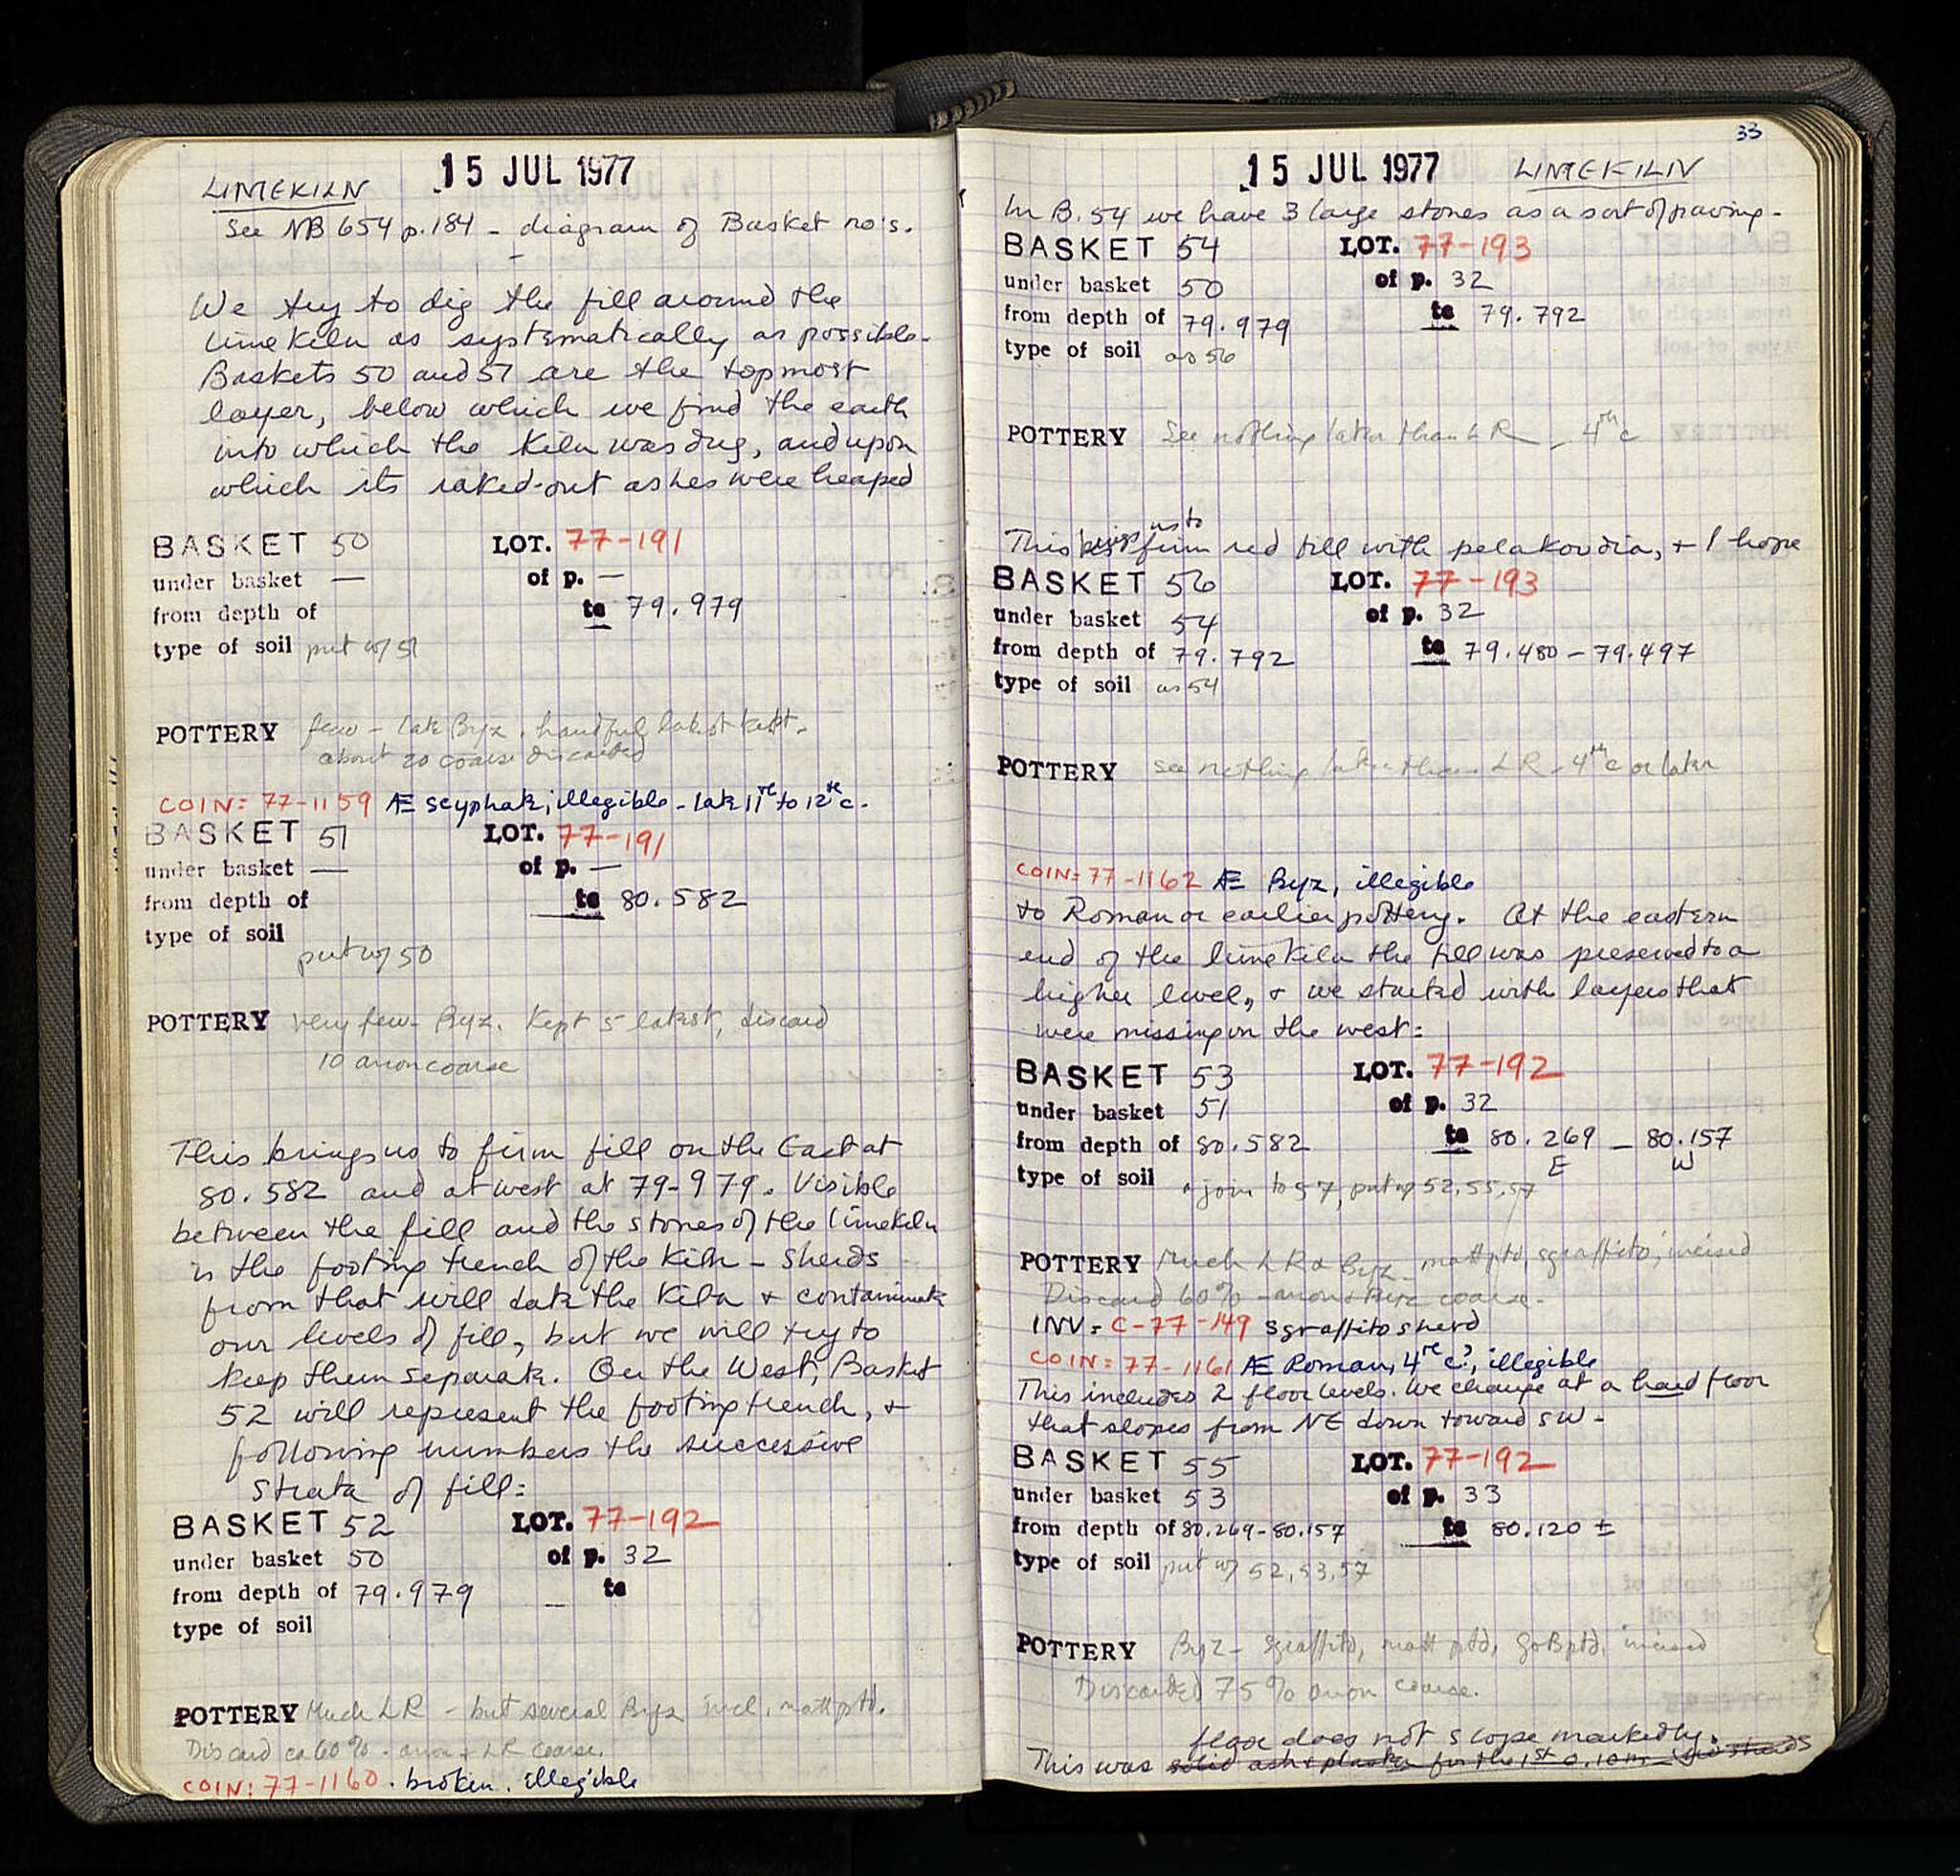 15 JUL 1977
LIMEKILN
See NB 654 p. 184 - diagram of Basket no's.
We try to dig the fill around the
limekiln as systematically as possible.
Baskets 50 and 51 are the topmost
layer, below which we find the earth
into which the kiln was dug, and upon
which its raked-out ashes were heaped
BASKET 50 LOT. 77-191
under basket — of p. —
from depth of to 79.979
type of soil put w/ 51
POTTERY few - late Byz. handful latest kept.
about 20 coarse discarded
COIN: 77-1159 Æ scyphate; illegible - late 11th to 12th c.
BASKET 51 LOT. 77-191
under basket — of p. —
from depth of to 80.582
type of soil
put w/ 50
POTTERY very few - Byz. Kept 5 latest, discard
10 anon coarse
This brings us to firm fill on the East at
80.582 and at west at 79-979. Visible
between the fill and the stones of the limekiln
is the footing trench of the kiln - sherds
from that will date the kiln + contaminate
our levels of fill, but we will try to
keep them separate. On the West, Basket
52 will represent the footing trench, +
following numbers the successive
strata of fill:
BASKET 52 LOT. 77-192
under basket 50 of p. 32
from depth of 79.979 — to
type of soil
POTTERY Much LR - but several Byz incl. matt ptd.
Discard ca 60% - anon + LR coarse.
COIN: 77-1160. broken. illegible
33
15 JUL 1977 LIMEKILN
In B. 54 we have 3 large stones as a sort of paving.
BASKET 54 LOT. 77-193
under basket 50 of p. 32
from depth of 79.979 to 79.792
type of soil as 56
POTTERY See nothing later than LR - 4th c
us to
This brings firm red fill with pelakoudia, + I hope
BASKET 56 LOT. 77-193
under basket 54 of p. 32
from depth of 79.792 to 79.480 - 79.497
type of soil as 54
POTTERY see nothing later than LR - 4th c or later
COIN: 77-1162 Æ Byz, illegible
to Roman or earlier pottery. At the eastern
end of the limekiln the fill was preserved to a
higher level, + we started with layers that
were missing on the west:
BASKET 53 LOT. 77-192
under basket 51 of p. 32
from depth of 80.582 to 80.269 - 80.157
E W
type of soil join to 57, put w/ 52, 55, 57
POTTERY Much LR + Byz - matt ptd, sgraffito, incised
Discard 60% - anon + Byz coarse.
INV: C-77-149 sgraffito sherd
COIN: 77-1161 Æ Roman, 4th c.?, illegible
This includes 2 floor levels. We change at a hard floor
that slopes from NE down toward SW -
BASKET 55 LOT. 77-192
under basket 53 of p. 33
from depth of 80.269-80.157 to 80.120 ±
type of soil put w/ 52, 53, 57
POTTERY Byz - sgraffito, matt ptd, incised
Discarded 75% anon coarse.
floor does not slope markedly.
This was solid ash + plaster for the 1st 0.10m sherds